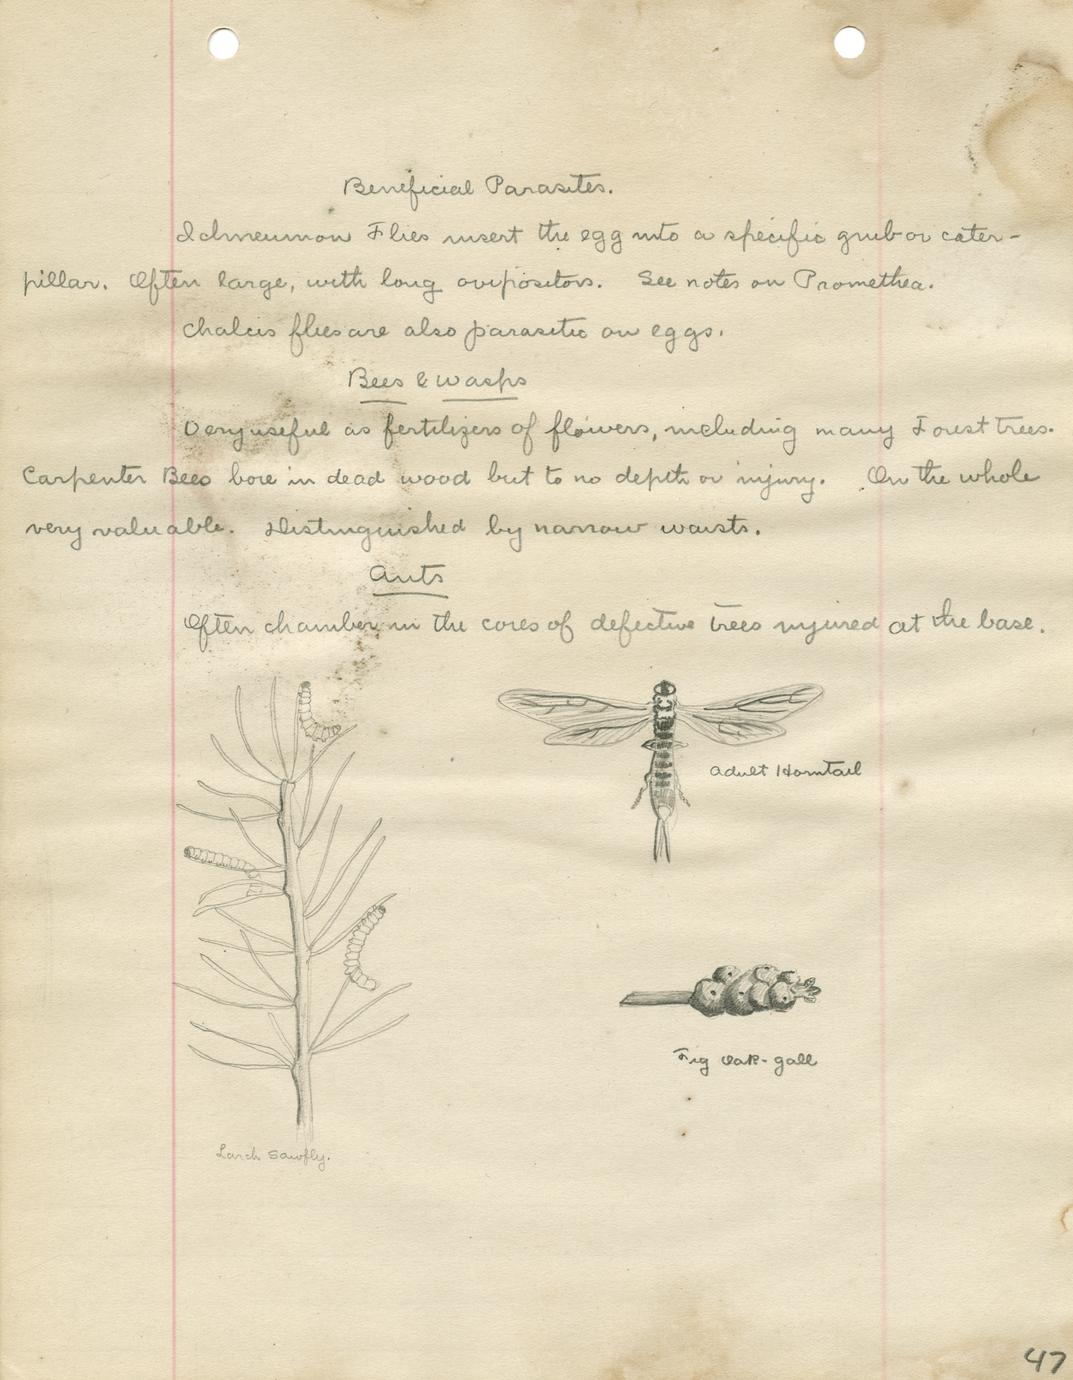 Beneficial Parasites.
Ichneumon Flies insert the egg into a specific grub or cater-
pillar. Often large, with long ovipositors. See notes on Promethea.
Chalcis flies are also parasitic on eggs.
Bees & Wasps
Very useful as fertilizers of flowers, including many Forest trees.
Carpenter Bees bore in dead wood but to no depth or injury. On the whole
very valuable. Distinguished by narrow waists.
Ants
Often chamber in the cores of defective trees injured at the base.
Adult Horntail
Fig Oak-gall
Larch Sawfly.
47